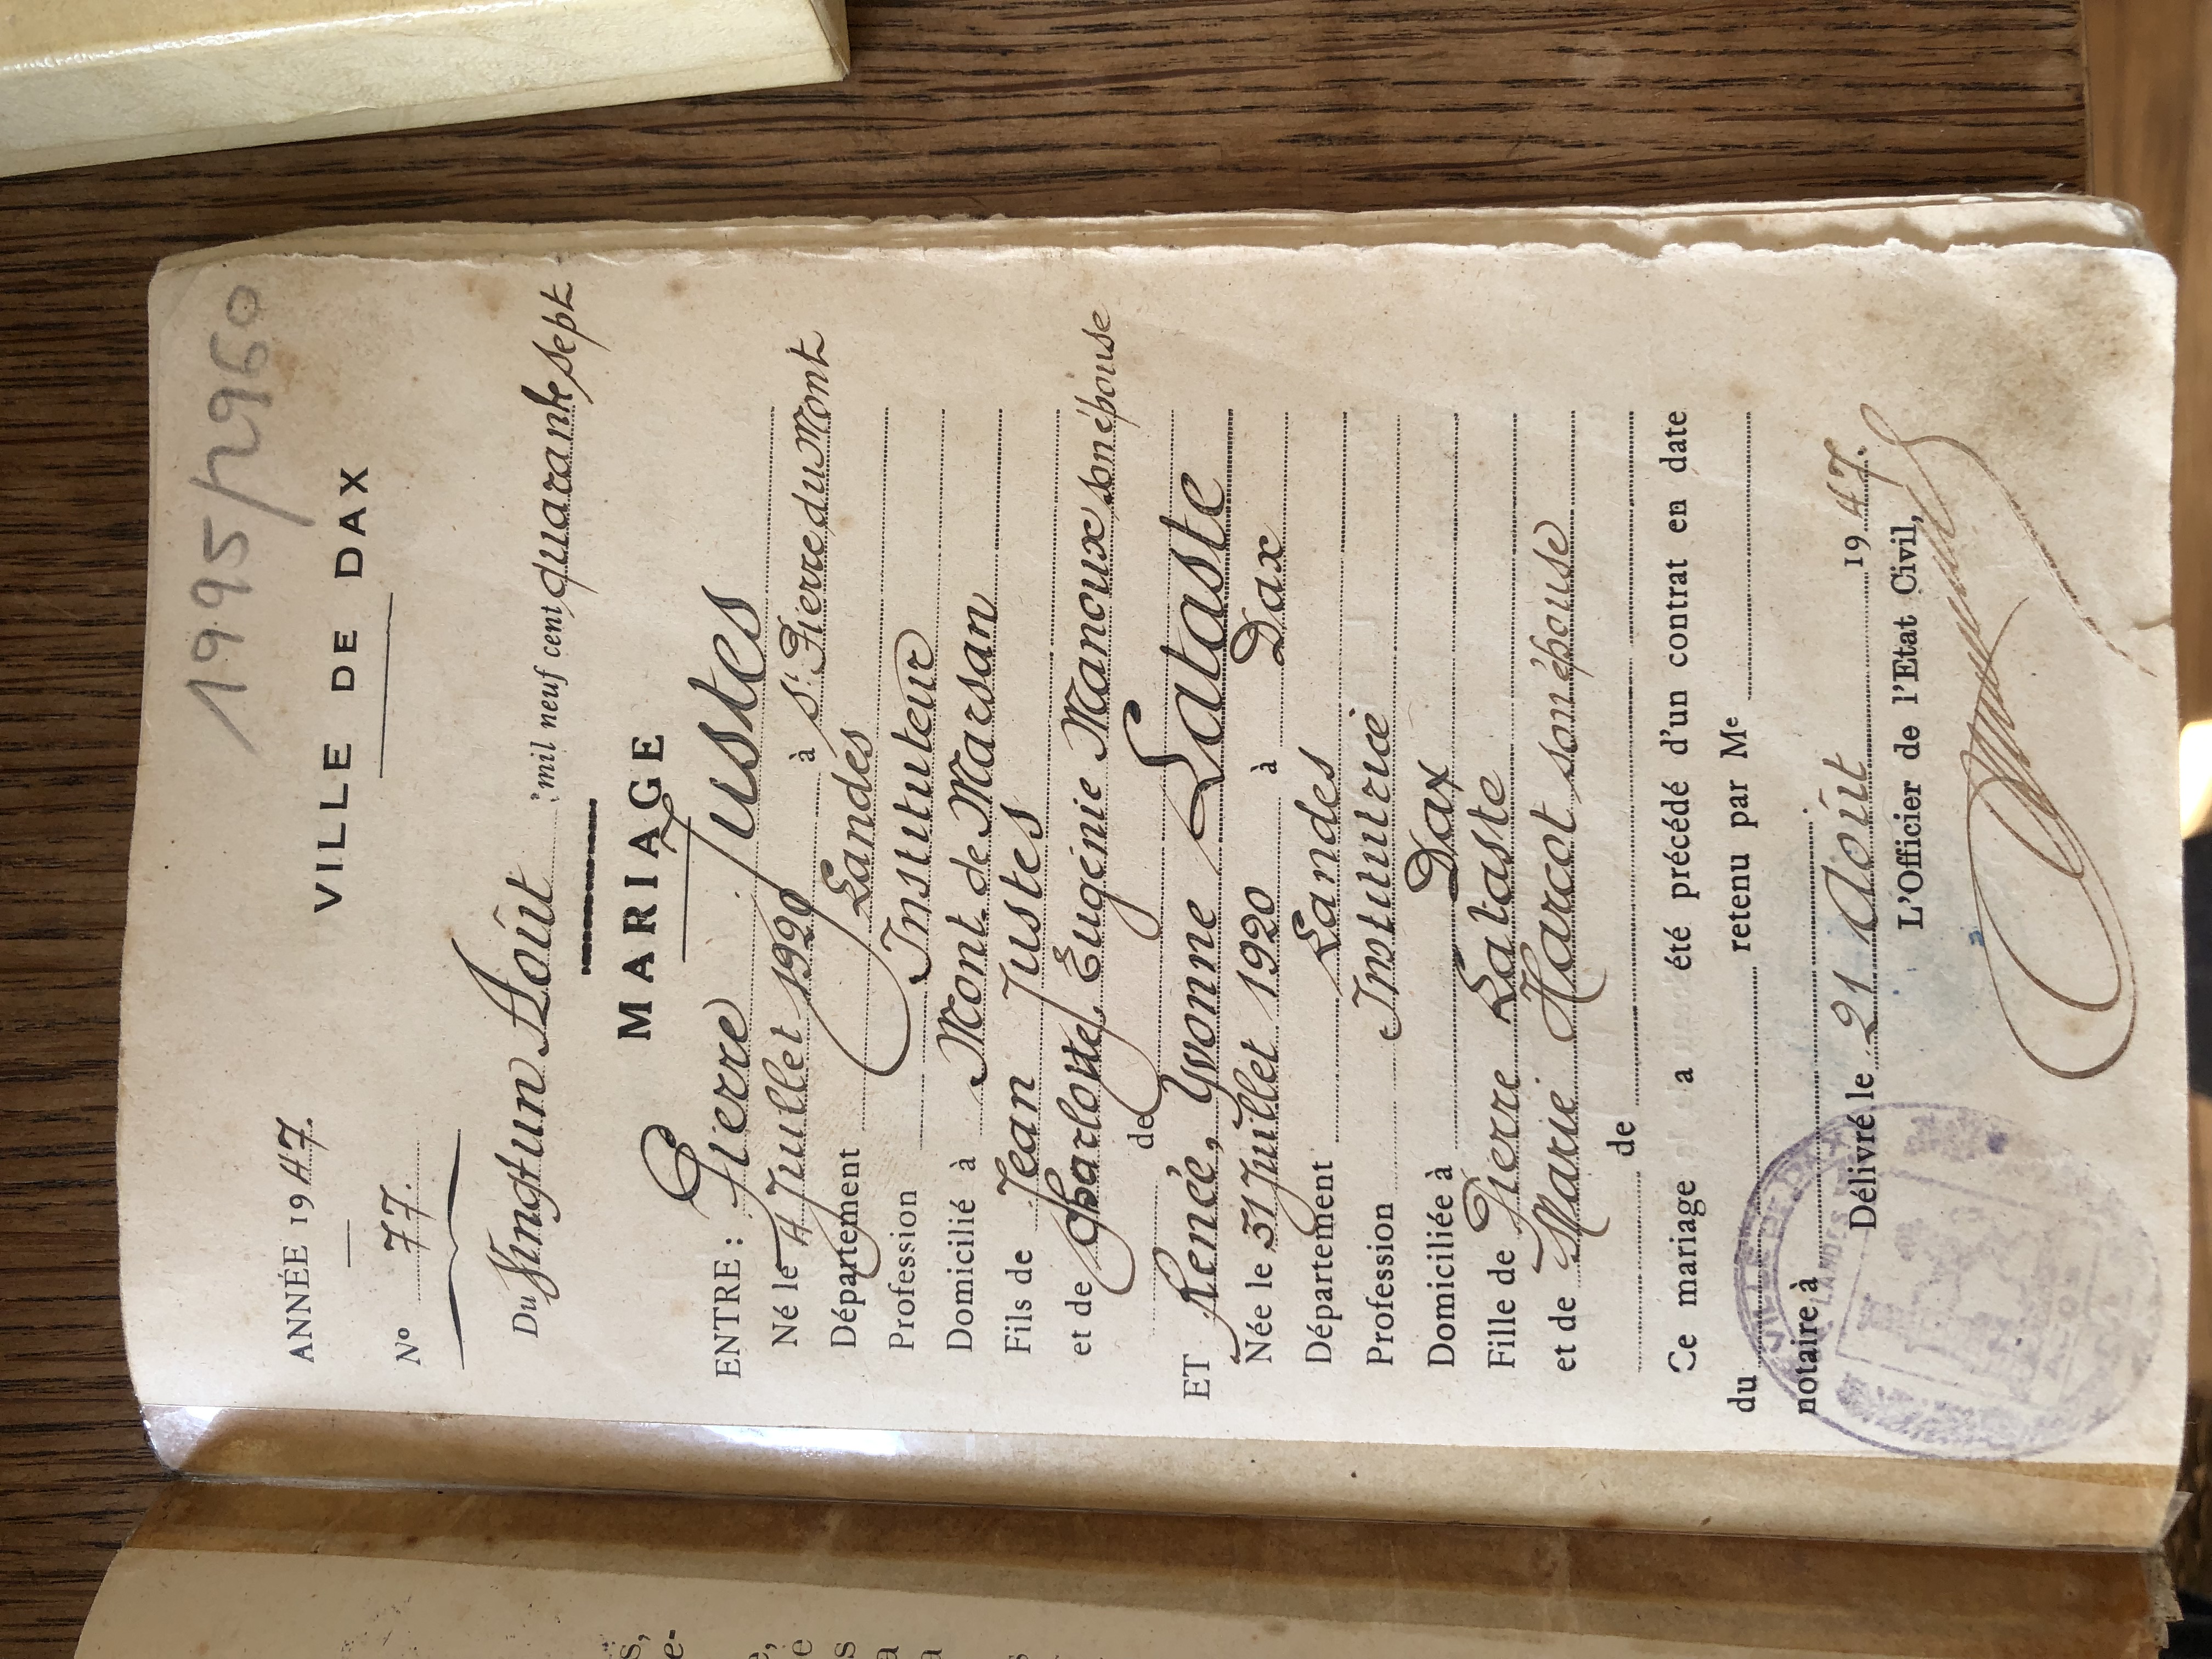 1995/2960
ANNÉE 1947.
VILLE DE DAX
N° 77.
Du Vingt un Août mil neuf cent quarante sept
MARIAGE
ENTRE : Pierre Justes
Né le 4 Juillet 1920 à St Pierre du Mont
Département Landes
Profession Instituteur
Domicilié à Mont de Marsan
Fils de Jean Justes
et de Charlotte, Eugénie Manoux son épouse
de
ET Renée, Yvonne Lataste
Née le 31 Juillet 1920 à Dax
Département Landes
Profession Institutrice
Domiciliée à Dax
Fille de Pierre Lataste
et de Marie Harcot son épouse
de
Ce mariage a été précédé d'un contrat en date
du retenu par Me
notaire à
Délivré le 21 Août 1947.
L'Officier de l'Etat Civil,
VILLE DE DAX
LANDES